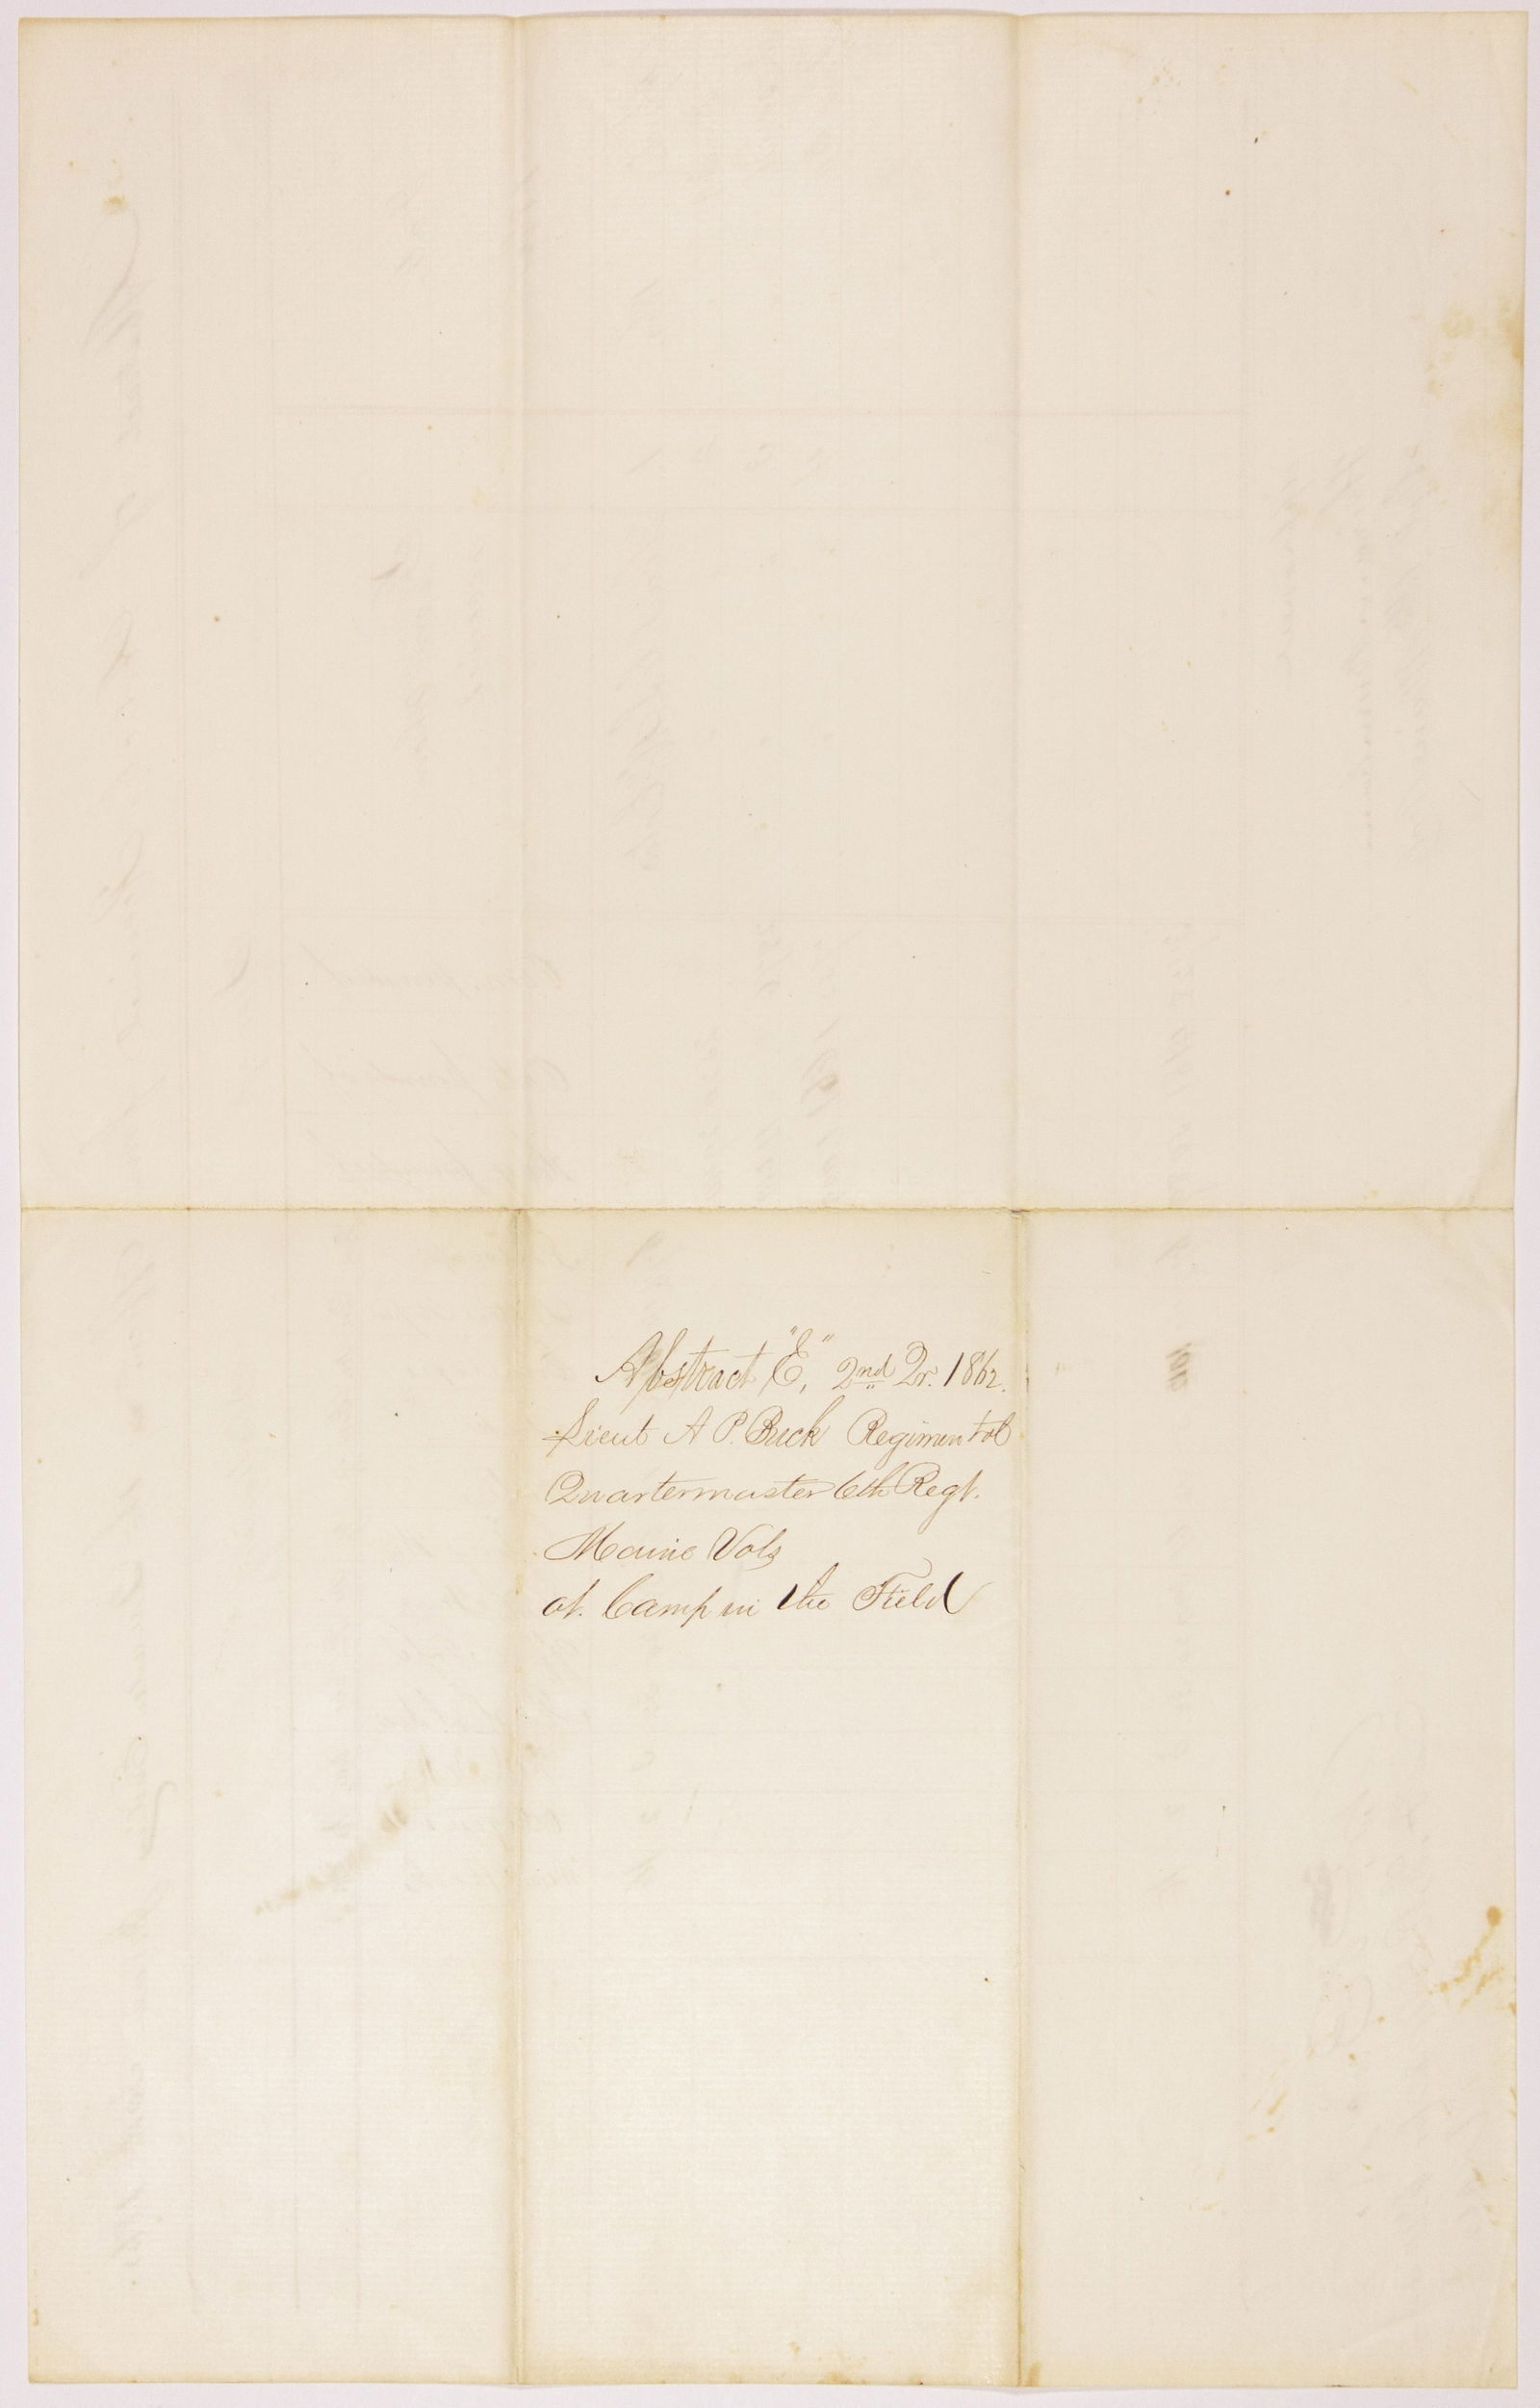 Abstract "E", 2nd Qr. 1862.
Lieut A P. Buck Regimental
Quartermaster 6th Regt.
Maine Vols
at. Camp in the Field